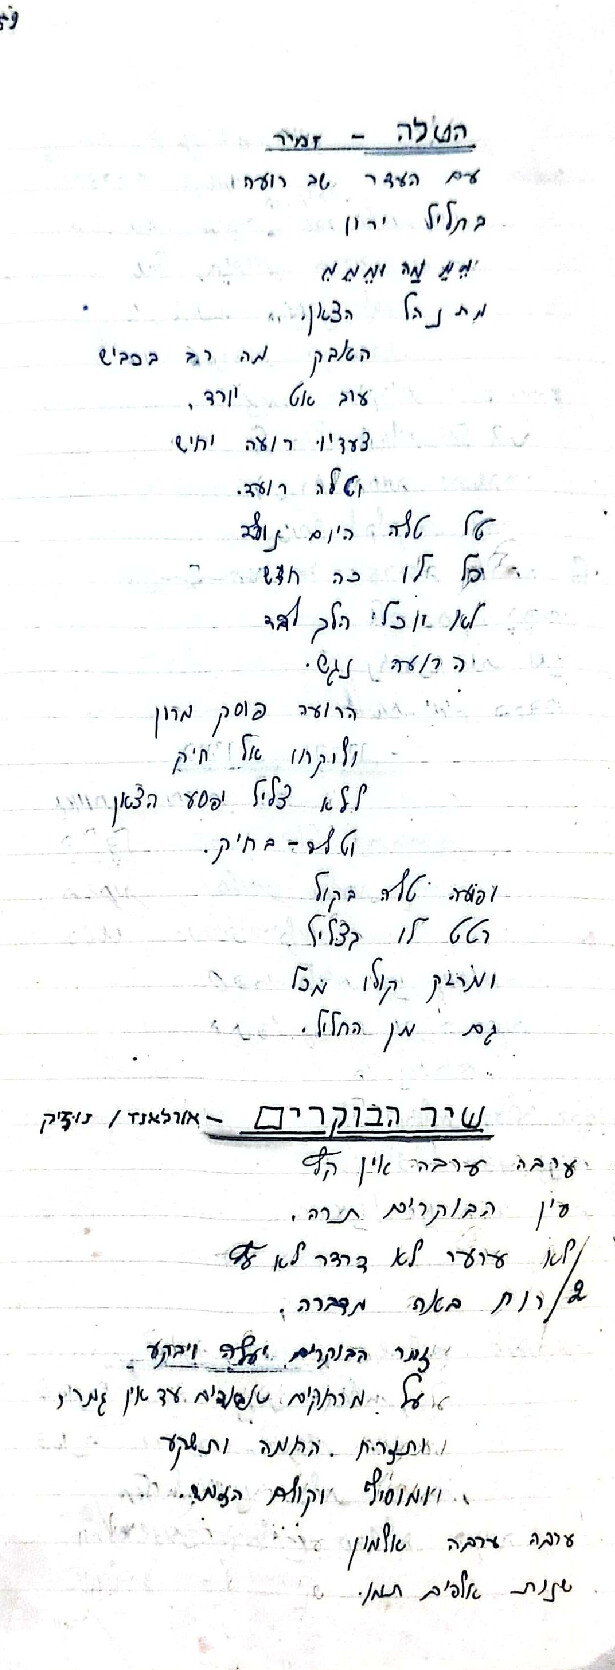 הטלה - זמיר
עם העדר שב רועה
בחליל ירון
מֶמֶ מֶה ומֶמֶמֶ
מתנהל הצאן.
האבק מה רב בכביש
ערב אט יורד,
צעדיו רועה יחיש
וטלה רועד.
טל טלה היום נולד
וכל לו כה חדש
לא יוכל הלך לבד
הרועה נגש.
הרועה פוסק מרון
ולוקחו אל חיק
ללא צליל יפסע הצאן
וטלה - בחיק.
ופועה טלה בקול
רטט לו בצליל
ומתוק קולו מכל
גם מן החליל.
שיר הבוקרים - אורלאנד / נוז'יק
ערבה ערבה אין קץ
עין הבוקרים תרה.
לא ערער לא דרדר לא עץ
2/ רוח באה מדברה.
זמר הבוקרים יעלה ויבקע
על מרחקים עד אין
ותזרח החמה ותשקע
ויוסיף וקולח הזמר.
ערבה ערבה אלמון
שנות אלפים תמו.